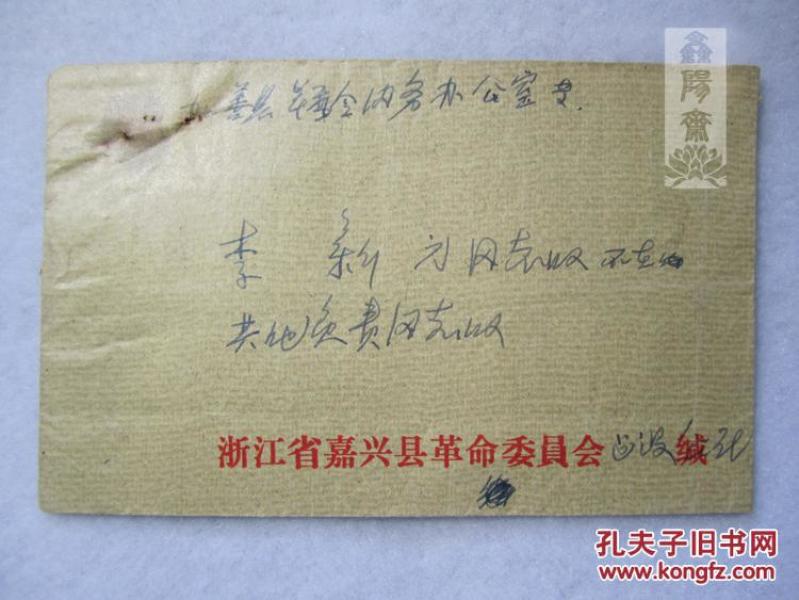 善县革委会内务办公室
李新
同志收 不在
其他负责同志收
浙江省嘉兴县革命委員会 缄
鑫陽齋
孔夫子旧书网
www.kongfz.com